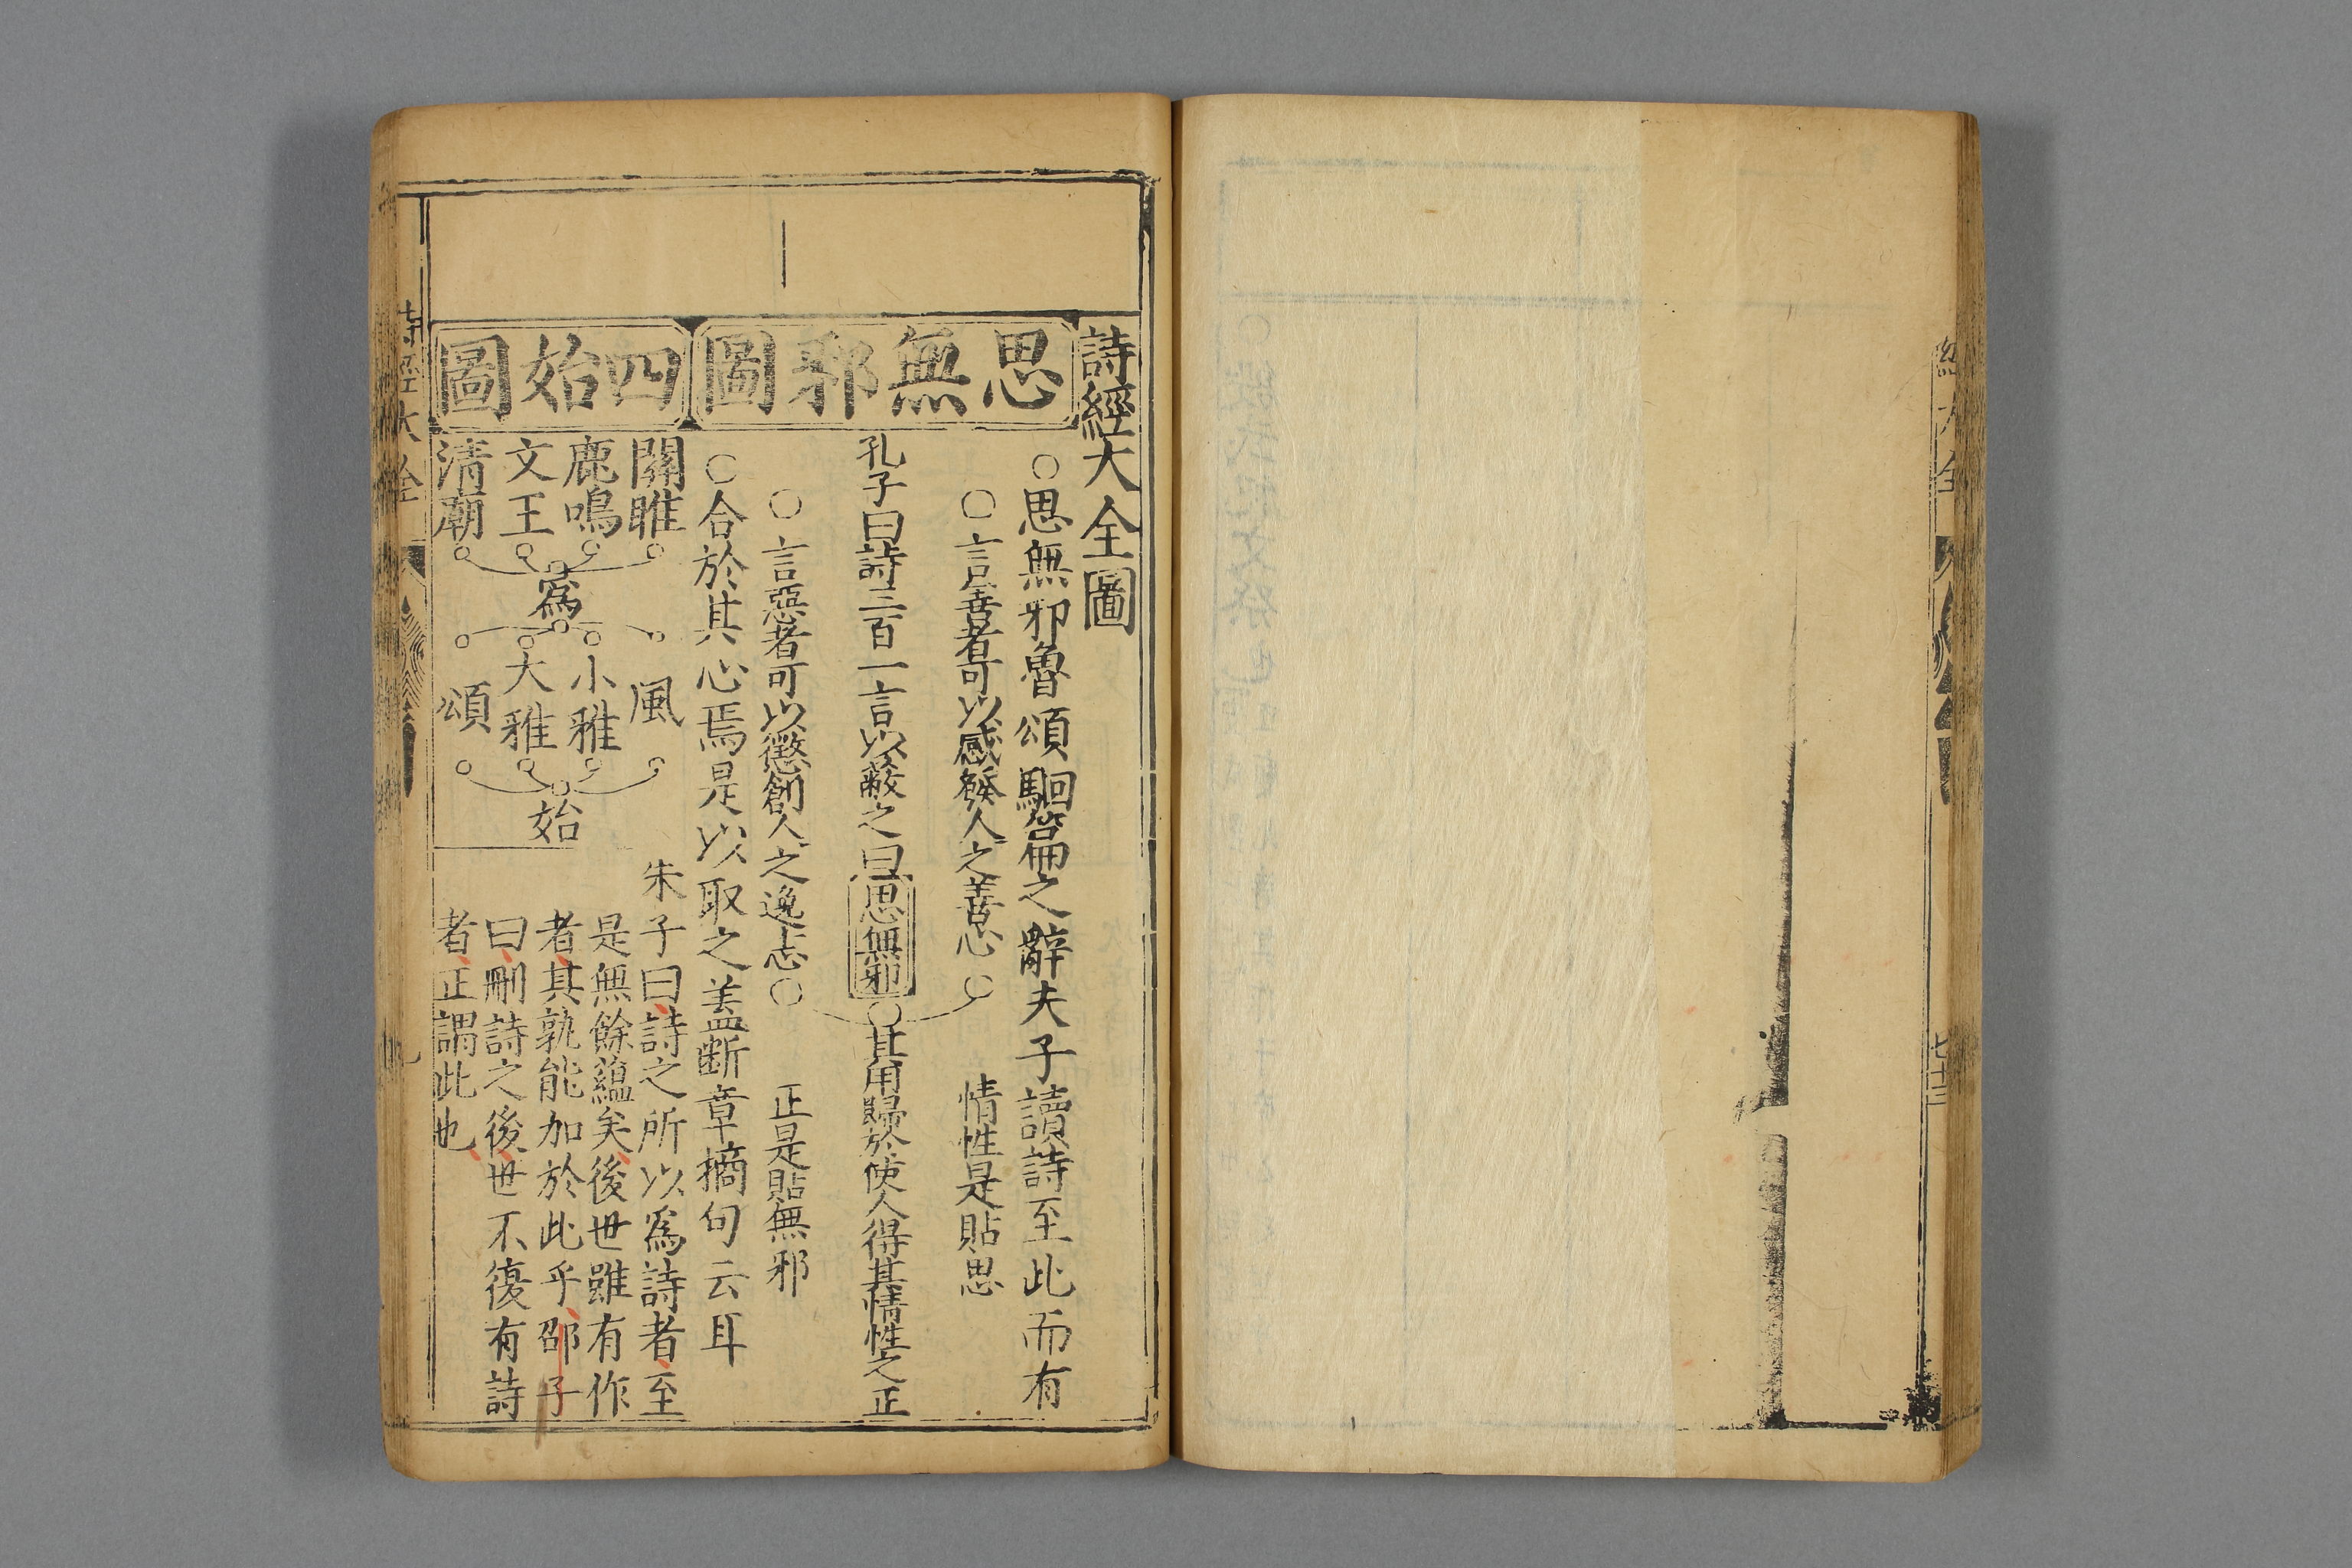 詩經大全圖
思無邪圖
○思無邪魯頌駉篇之辭夫子讀詩至此而有
○言善者可以感發人之善心○
情性是貼思
孔子曰詩三百一言以蔽之曰思無邪○其用歸於使人得其情性之正
○言惡者可以懲創人之逸志○
正是貼無邪
○合於其心焉是以取之盖断章摘句云耳
四始圖
關雎
鹿鳴
文王
清廟
為
風
小雅
大雅
頌
始
朱子曰詩之所以爲詩者至
是無餘蘊矣後世雖有作
者其孰能加於此乎邵子
曰刪詩之後世不復有詩
者正謂此也
詩經大全